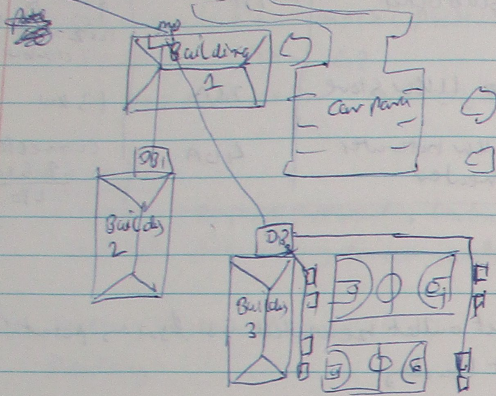 Building
1
Car park
DB1
Building
2
DB2
Building
3